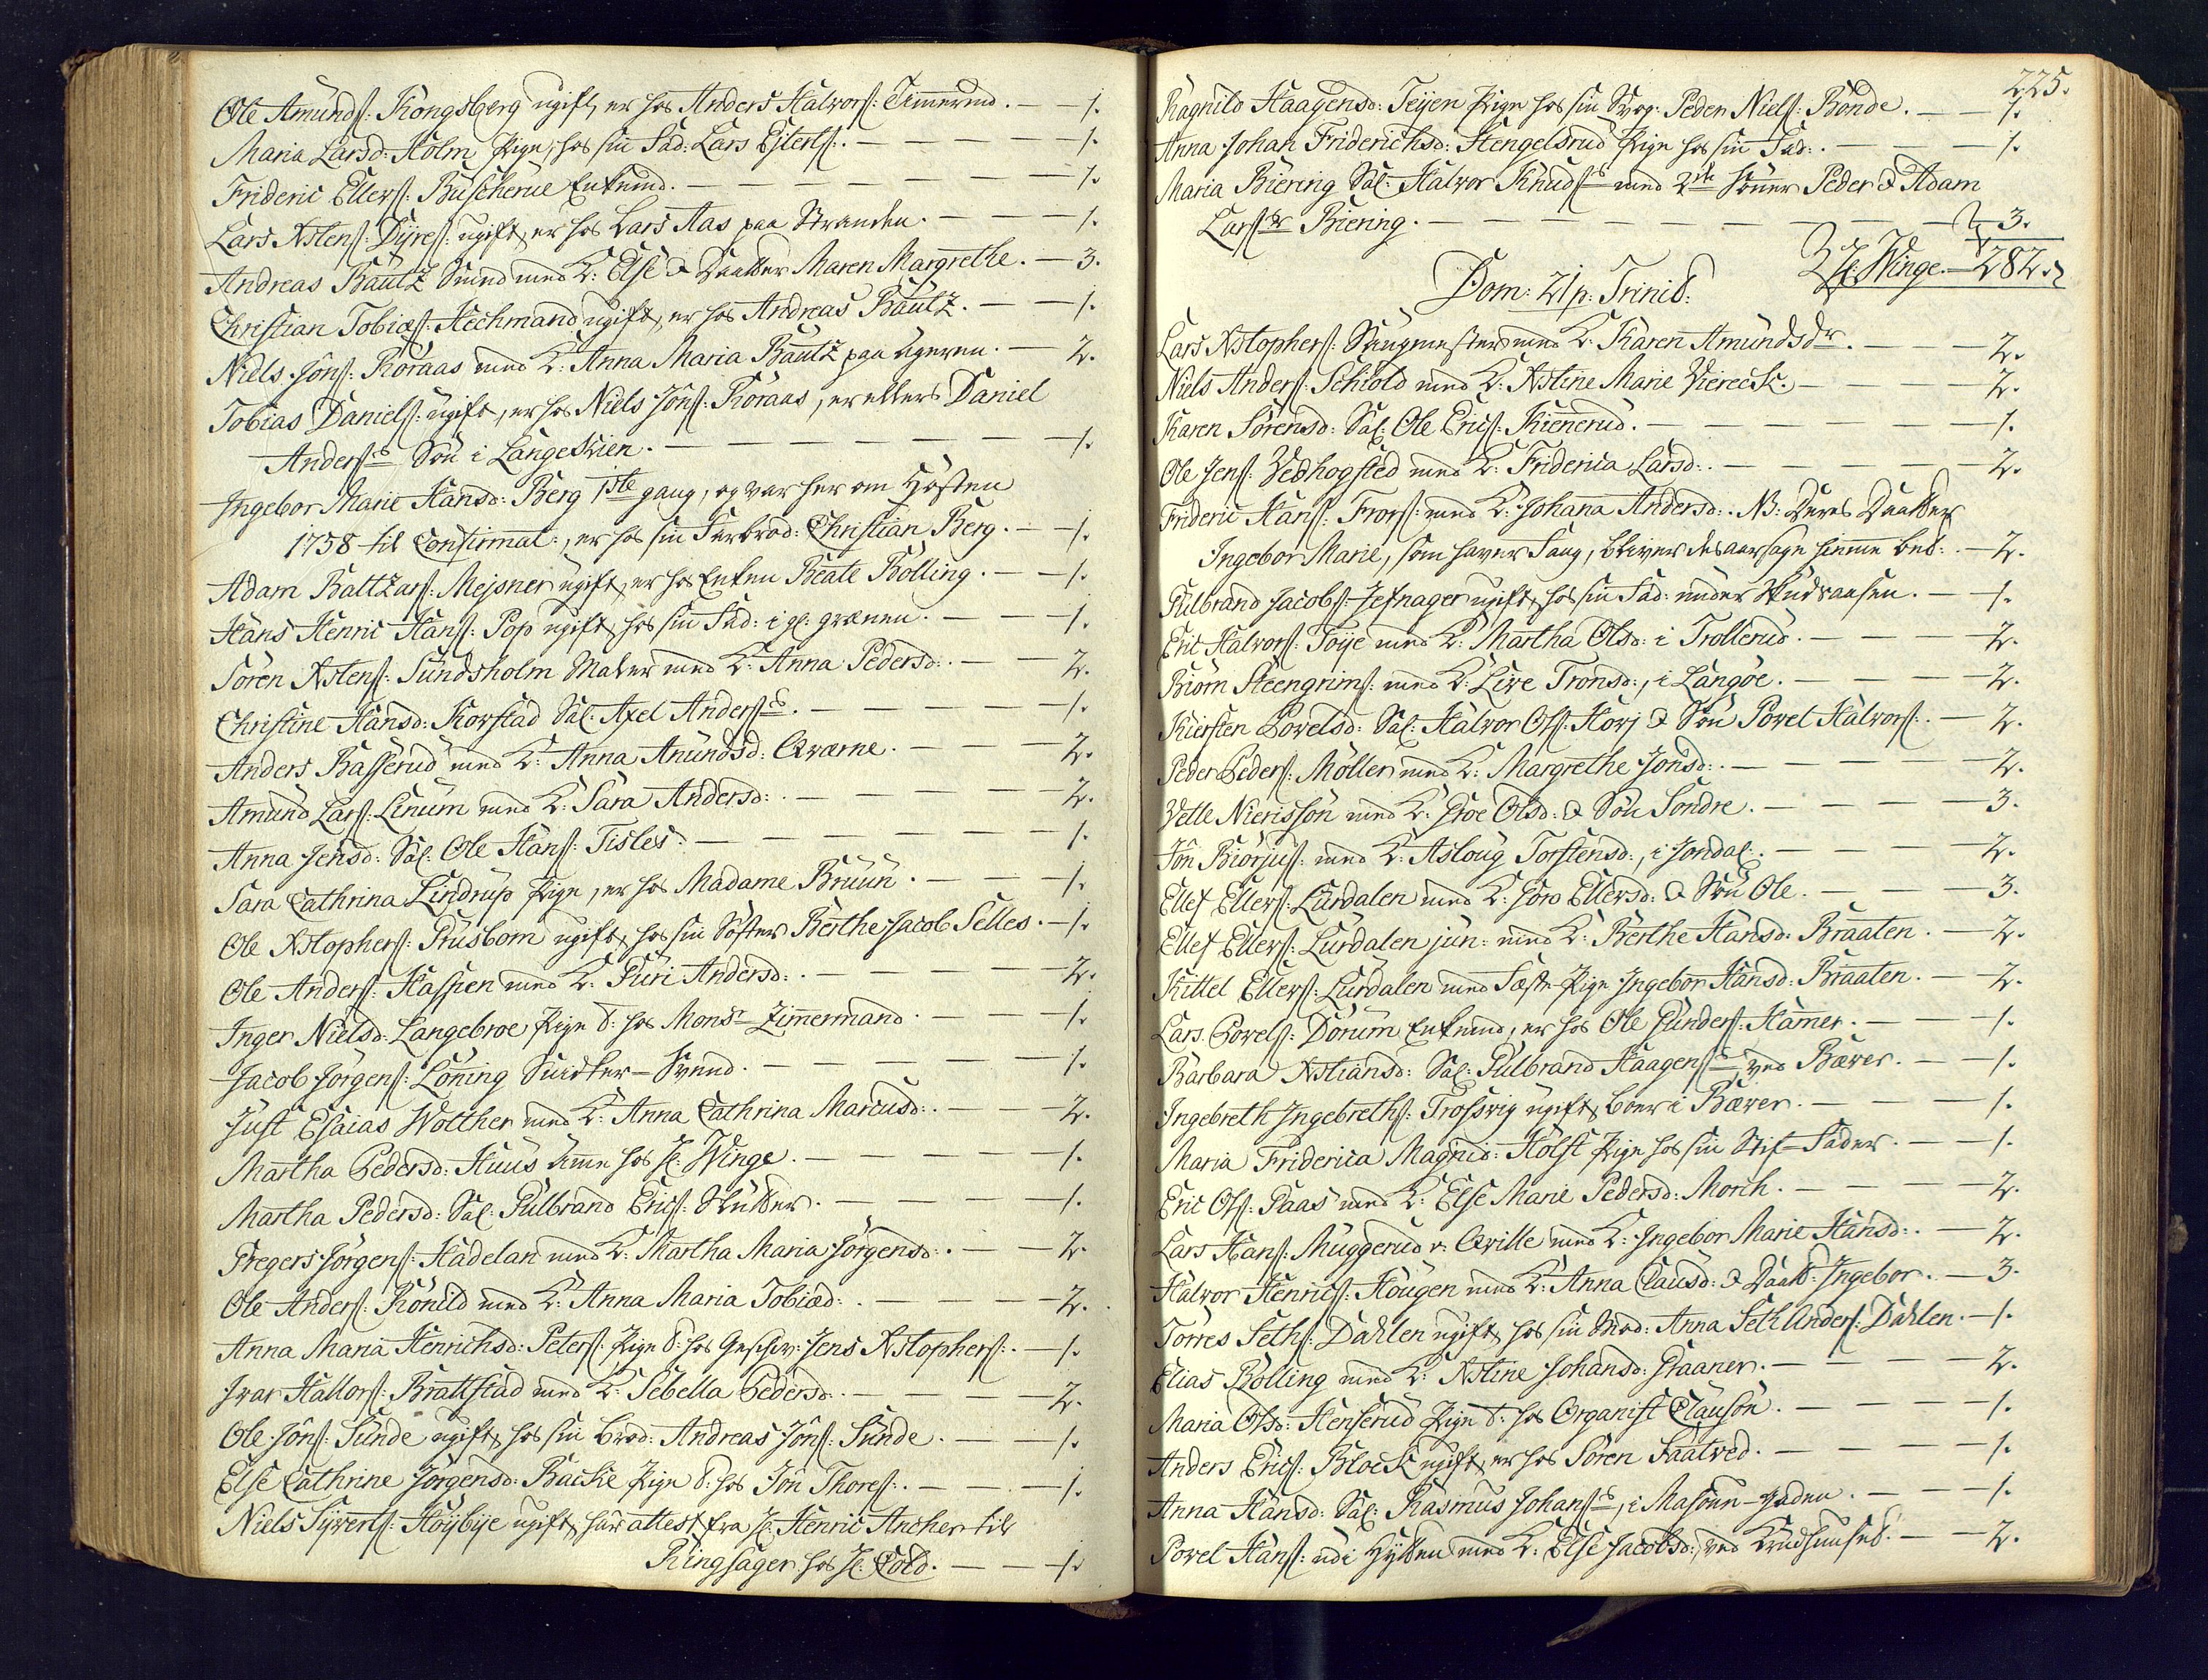 Ole Amunds: Kongsberg ugift, er hos Anders Halvors: Timerud. — 1.
Maria Larsd: Holm Pige, hos sin Fad: Lars Ejlerts: — 1.
Frideric Ellers: Buscherue Enkemd. — 1.
Lars Xstens: Dyres: ugift, er hos Lars Aas paa Stranden. — 1.
Andreas Bautz Smed med K: Else & Daatter Maren Margrethe. — 3.
Christian Tobiæs: Hechmand ugift, er hos Andreas Bautz. — 1.
Niels Jöns: Röraas med K: Anna Maria Bautz paa Ageren. — 2.
Tobias Daniels: ugift, er hos Niels Jöns: Röraas, er ellers Daniel
Anders:s Sön i Langeskien. — 1.
Ingebor Marie Hansd: Berg 1ste gang, og var her om Hösten
1758 til Confirmat:, er hos sin Farbrod: Christian Berg. — 1.
Adam Baltzars: Mejsner ugift, er hos Enken Beate Bölling. — 1.
Hans Henric Hans: Pop ugift, hos sin Fad: i gl: grænen. — 1.
Sören Xstens: Sundsholm Maler med K: Anna Pedersd: — 2.
Christine Hansd: Korstad Sal: Axel Anders:s. — 1.
Anders Basserud med K: Anna Amundsd: Qværne. — 2.
Amund Lars: Linum med K: Sara Andersd: — 2.
Anna Jensd: Sal: Ole Hans: Tisles: — 1.
Sara Cathrina Lindrup Pige, er hos Madame Bruun. — 1.
Ole Xstophers: Prusbom ugift, hos sin Söster Berthe Jacob Selles. — 1.
Ole Anders: Haspen med K: Guri Andersd: — 2.
Inger Nielsd: Langebroe Pige t: hos Monsr Zimermand. — 1.
Jacob Jörgens: Löning Snidker-Svend. — 1.
Just Esaias Wolther med K: Anna Cathrina Marcusd: — 2.
Martha Pedersd: Huus Ame hos Hr: Winge. — 1.
Martha Pedersd: Sal: Gulbrand Erics: — 1.
Gregers Jörgens: Hadelan med K: Martha Maria Jörgensd: — 2.
Ole Anders: Rönild med K: Anna Maria Tobiæd: — 2.
Anna Maria Henrichsd: Peters: Pige t: hos Geschw: Jens Xstophers: — 1.
Ivar Hallors: Brattstad med K: Sebella Pedersd: — 2.
Ole Jöns: Sunde ugift, hos sin Brod: Andreas Jöns: Sunde. — 1.
Else Cathrine Jörgensd: Backe Pige t: hos Jön Thores: — 1.
Niels Syverts: Höybye ugift, har attest fra Hr: Henric Ancher til
Ringsager hos Hr: Cold. — 1.
225.
Ragnild Haagensd: Teijen Pige hos sin Svog: Peder Niels: Bonde. — 1.
Anna Johan Friderichsd: Hengelsrud Pige hos sin Fad: — 1.
Maria Biering Sal: Halvor Knuds:s med 2de Sönner Peder & Adam
Lars:r Biering. — 3.
Hr: Winge — 282.
Dom: 21 p: Trinit:
Lars Xstophers: Stugmester med K: Karen Amundsdr. — 2.
Niels Anders: Schiold med K: Xstine Marie Viereck. — 2.
Karen Sörensd: Sal: Ole Erics: Kienerud. — 1.
Ole Jens: Vedhogsted med K: Friderica Larsd: — 2.
Frideric Hans: Frors: med K: Johana Andersd: NB: Deres Daatter
Ingebor Marie, som haver Saug, bliver desaarsage hieme bet: — 2.
Gulbrand Jacobs: Jefnager ugift, hos sin Fad: under Skudraasen. — 1.
Eric Halvors: Foije med K: Martha Olsd: i Trollerud. — 2.
Biörn Steengrims: med K: Live Tronsd:, i Langöe. — 2.
Kiersten Povelsd: Sal: Halvor Ols: Horj & Sön Povel Halvors: — 2.
Peder Peders: Möller med K: Margrethe Jonsd: — 2.
Vetle Nierissön med K: Groe Olsd: & Sön Sondre. — 3.
Jön Biörjus: med K: Asloug Torstensd:, i Jondal: — 2.
Ellef Ellers: Lurdalen med K: Goro Ellersd: & Sön Ole. — 3.
Ellef Ellers: Lurdalen jun: med K: Berthe Hansd: Braaten. — 2.
Kittel Ellers: Lurdalen med Fæste-Pige Ingebor Hansd: Braaten. — 2.
Lars Povels: Dorum Enkemd, er hos Ole Gunders: Hamer. — 1.
Barbara Xstiansd: Sal: Gulbrand Haagens:s, ved Bæver. — 1.
Ingebreth Ingebreths: Trosvig ugift, boer i Bæver. — 1.
Maria Friderica Magnid: Holst Pige hos sin Stif-Fader. — 1.
Eric Ols: Paas med K: Else Marie Pedersd: Morch. — 2.
Lars Hans: Muggerud v: Qville med K: Ingebor Marie Hansd: — 2.
Halvor Henrics: Hougen med K: Anna Clausd: & Daatt: Ingebor. — 3.
Törres Seths: Dahlen ugift, hos sin Mod: Anna Seth Anders: Dahlen. — 1.
Elias Bölling med K: Xstine Johansd: Graaner. — 2.
Maria Olsd: Henserud Pige t: hos Organist Clausön. — 1.
Anders Erics: Block ugift, er hos Sören Saatved. — 1.
Anna Hansd: Sal: Rasmus Johans:s, i Masoun-gaden. — 1.
Povel Hans: udi Hytten med K: Else Jacobsd:, ved Krudhuuset. — 2.